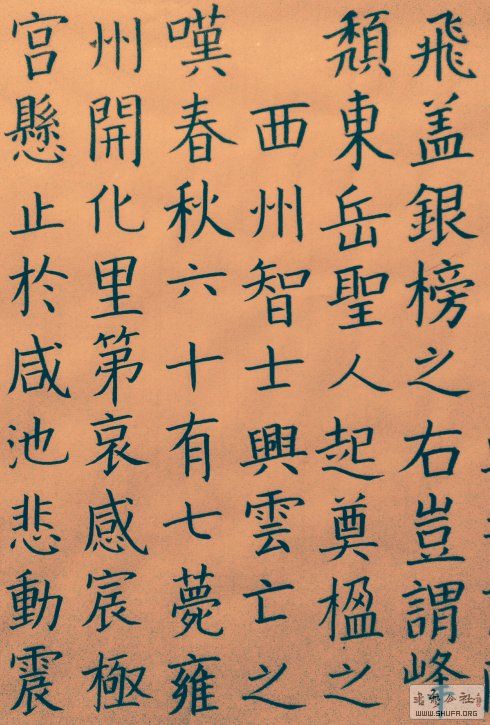 飛盖銀榜之右豈謂峰
頹東岳聖人起奠楹之
西州智士興雲亡之
嘆春秋六十有七薨雍
州開化里第哀感宸極
宫懸止於咸池悲動震
公社
WWW.SHUFA.ORG